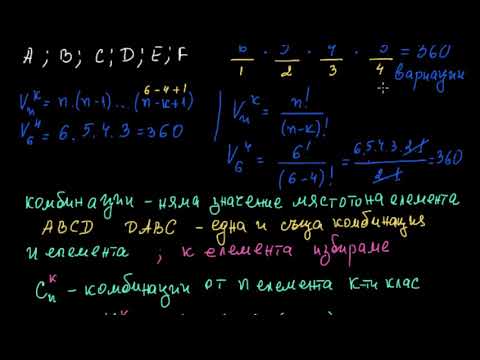 A ; B ; C ; D ; E ; F
6/1 . 5/2 . 4/3 . 3/4 = 360
вариации
6-4+1
V_n^k = n.(n-1)...(n-k+1)
V_6^4 = 6.5.4.3 = 360
V_n^k = n!/(n-k)!
V_6^4 = 6!/(6-4)! = 6.5.4.3.2.1/2.1 = 360
комбинации - няма значение мястото на елемента
ABCD DABC - една и съща комбинация
n елемента ; к елемента избираме
C_n^k - комбинации от n елемента к-ти клас